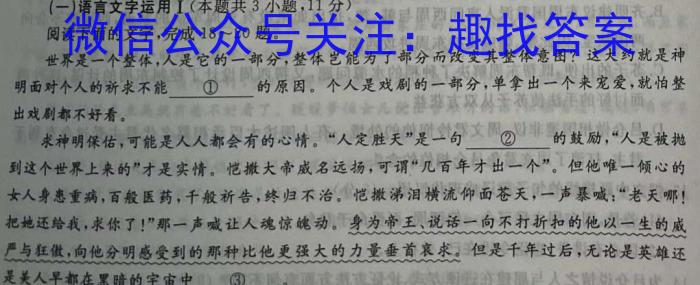 (一)语言文字运用Ⅰ(本题共3小题,11分)
阅读下面的文字,完成18~20题。
微信公众号关注:趣找答案
世界是一个整体,人是它的一部分,整体岂能为了部分而改变其整体意图?这大约就是神
明面对个人的祈求不能 ① 的原因。个人是戏剧的一部分,单拿出一个来宠爱,就怕整
出戏剧都不好看。
求神明保佑,可能是人人都会有的心情。“人定胜天”是一句 ② 的鼓励,“人是被抛
到这个世界上来的”才是实情。恺撒大帝威名远扬,可谓“几百年才出一个”。但他唯一倾心的
女人身患重病,百般医药,千般祈告,终归不治。恺撒涕泪横流仰面苍天,一声暴喊:“老天哪!
把她还给我,求你了!”那一声喊让人魂惊魄动。身为帝王、说话一向不打折扣的他以一生的威
严与狂傲,向他分明感受到的那种比他更强大的力量垂首哀求。但是千年过后,无论是英雄还
是美人早都在黑暗的宇宙中 ③